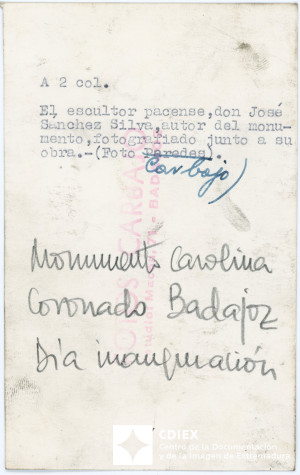 A 2 col.
El escultor pacense,don José
Sánchez Silva,autor del monu-
mento,fotografiado junto a su
obra.-(Foto Paredes).
Carbajo)
FOTOS CARBAJO
BADAJOZ
Monumento Carolina
Coronado Badajoz
Día inauguración
CDIEX
Centro de la Documentación
y de la Imagen de Extremadura